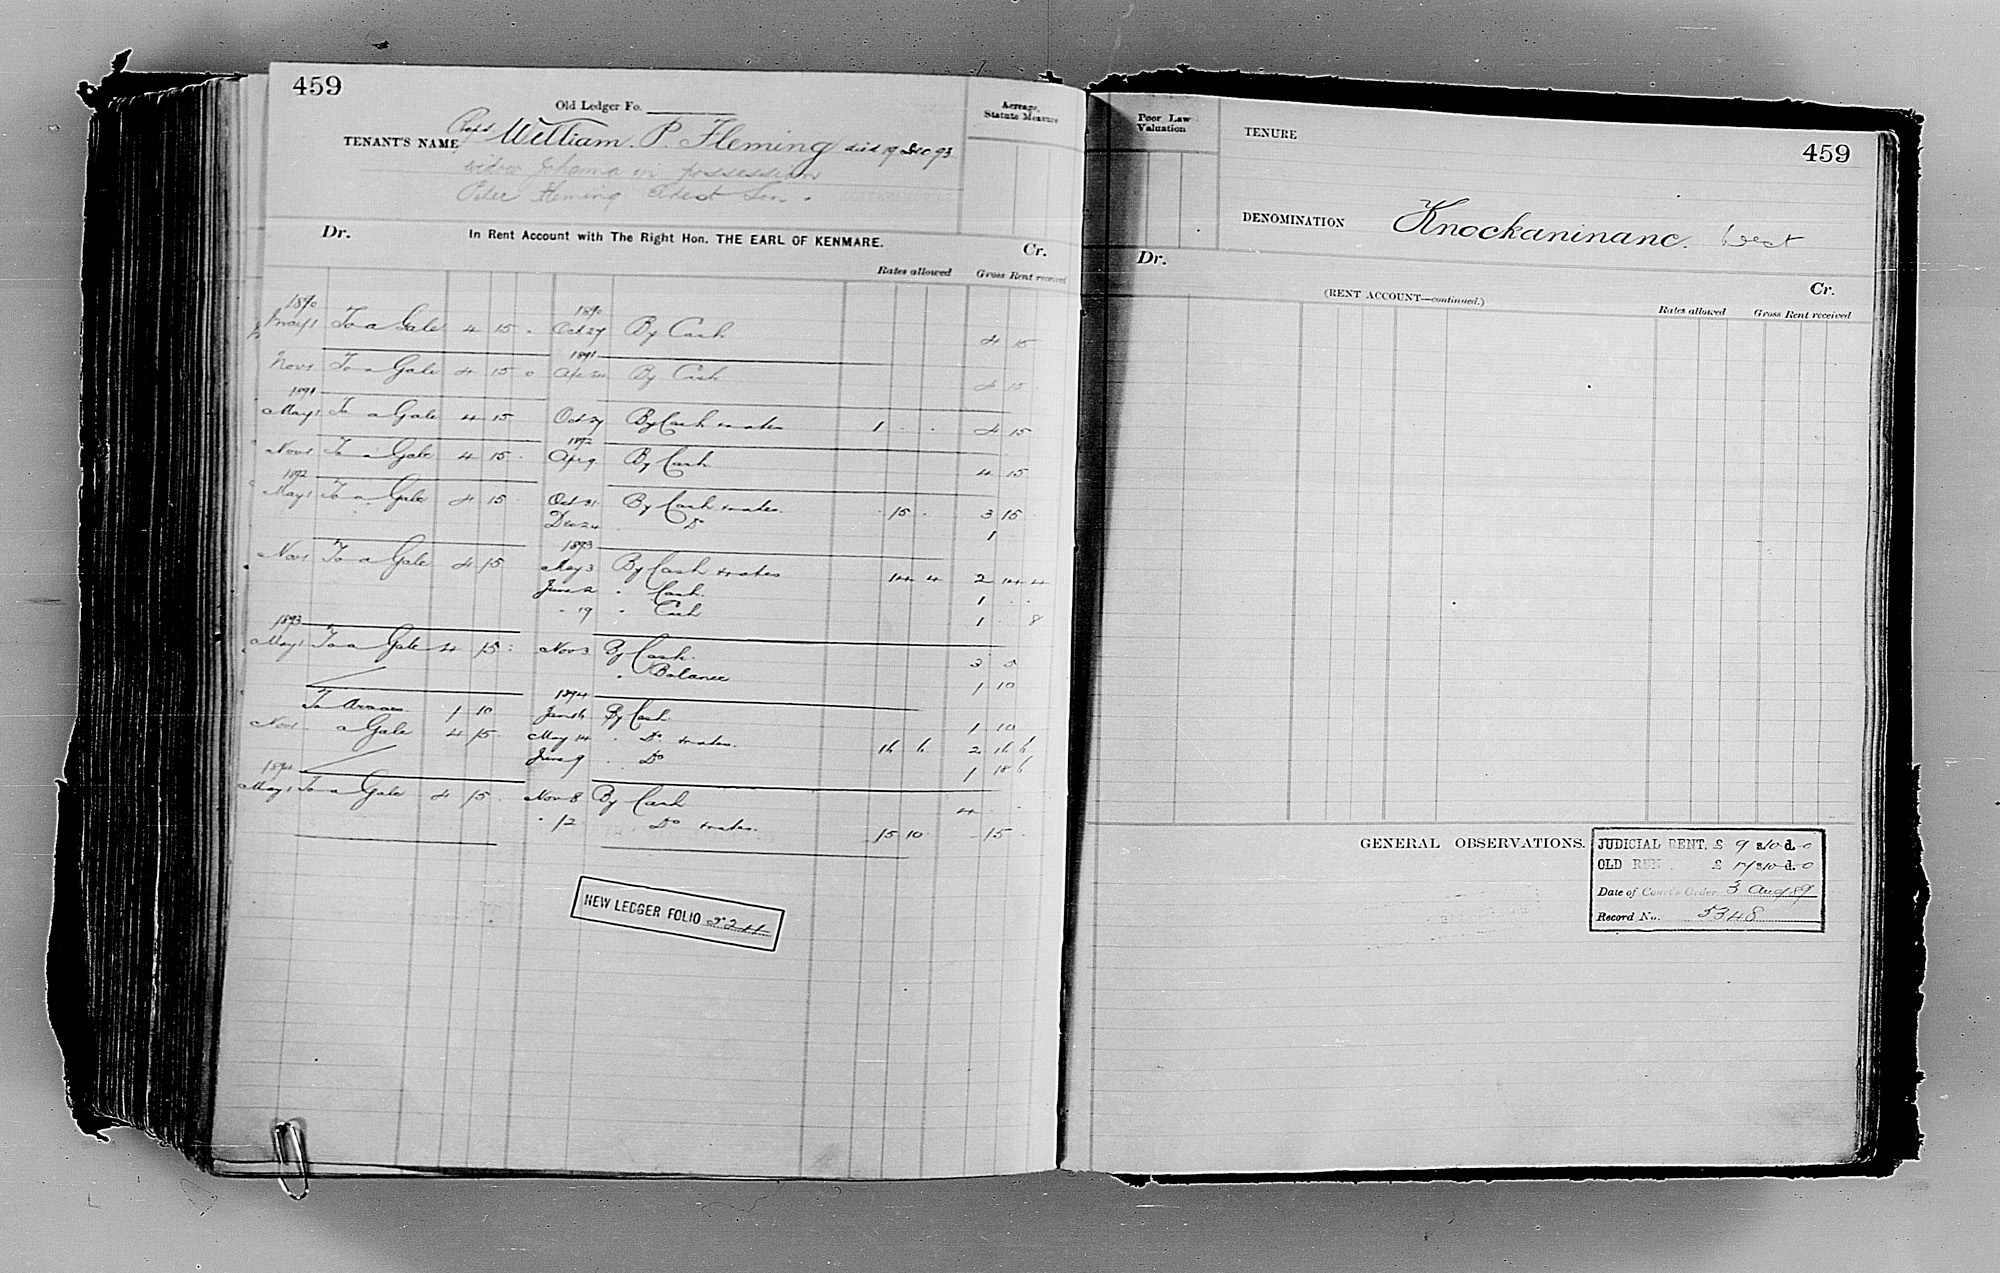 459
Old Ledger Fo.
Acreage, Statute Measure
TENANT'S NAME Reps William. P. Fleming died 19 Dec 93
widow Johanna in possession
Peter Fleming Eldest Son.
Dr. In Rent Account with The Right Hon. THE EARL OF KENMARE. Cr.
Rates allowed Gross Rent received
1890 1890
May 1 To a Gale 4 15 - Oct 27 By Cash 4 15
1891
Nov 1 To a Gale 4 15 0 Apr 24 By Cash 4 15
1891
May 1 To a Gale 4 15 Oct 27 By Cash & rates 1 . . 4 15
1892
Nov 1 To a Gale 4 15 . Apr 9 By Cash 4 15
1892
May 1 To a Gale 4 15 Oct 31 By Cash & rates. . 15 . 3 15
Dec 24 Do 1
1893
Nov 1 To a Gale 4 15 May 3 By Cash & rates 14 4 2 14 4
June 2 " Cash. 1 . .
" 19 " Cash 1 8
1893
May 1 To a Gale 4 15 : Nov 3 By Cash. 3 5
" Balance 1 10
1894
To Arrears 1 10 Jan 16 By Cash 1 10
Nov 1 a Gale 4 15 May 14 " Do & rates. 16 6 2 16 6
June 9 " Do 1 18 6
1894
May 1 To a Gale 4 15 . Nov 8 By Cash 4 . .
" 12 Do & rates. 15 10 - 15 -
NEW LEDGER FOLIO
Poor Law Valuation
TENURE
459
DENOMINATION Knockaninane. West
Dr. Cr.
(RENT ACCOUNT—continued.)
Rates allowed Gross Rent received
GENERAL OBSERVATIONS.
JUDICIAL RENT, £ 9 s10 d. 0
OLD REN £ 17 s10 d. 0
Date of Court's Order, 3 Aug 89
Record No. 5348